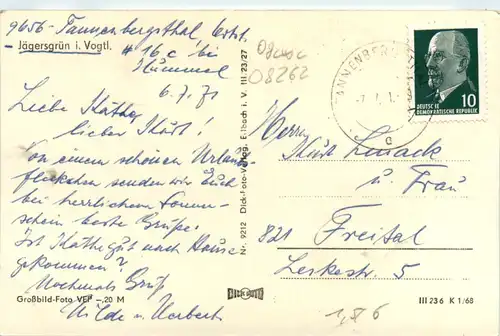 9656 - Tannenbergsthal
Jägersgrün i. Vogtl.
# 16 c bei
Hümmel
6.7.71
Liebe Käthe,
lieber Kurt!
Von einem schönen Urlaubs-
fleckchen senden wir Euch
bei herrlichem Sonnen-
schein beste Grüße.
Ist Käthe gut nach Hause
gekommen?
Nochmals Gruß
Hilde u. Herbert
Großbild-Foto VEP -,20 M
Nr. 9212 Dick-Foto-Verlag, Erlbach i. V. III/23/27
08262
TANNENBERG
a
DEUTSCHE
DEMOKRATISCHE REPUBLIK
10
Herrn
Kurt
u. Frau
821 Freital
Leskestr. 5
III 23 6 K 1/68
1,86